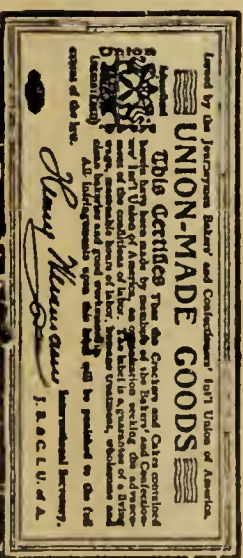 Issued by the Journeymen Bakers' and Confectioners' Int'l Union of America.
UNION-MADE GOODS
This Certifies That the Crackers and Cakes contained
herein have been made by members of the Bakers' and Confection-
ers' Int'l Union of America, an organization seeking the advance-
ment of the conditions of labor. The label is a guarantee of a living
wage, reasonable hours of labor, humane treatment, wholesome and
clean bakeries and good workmanship.
All infringements upon this label will be punished to the full
extent of the law.
International Secretary,
J. B. & C. I. U. of A.